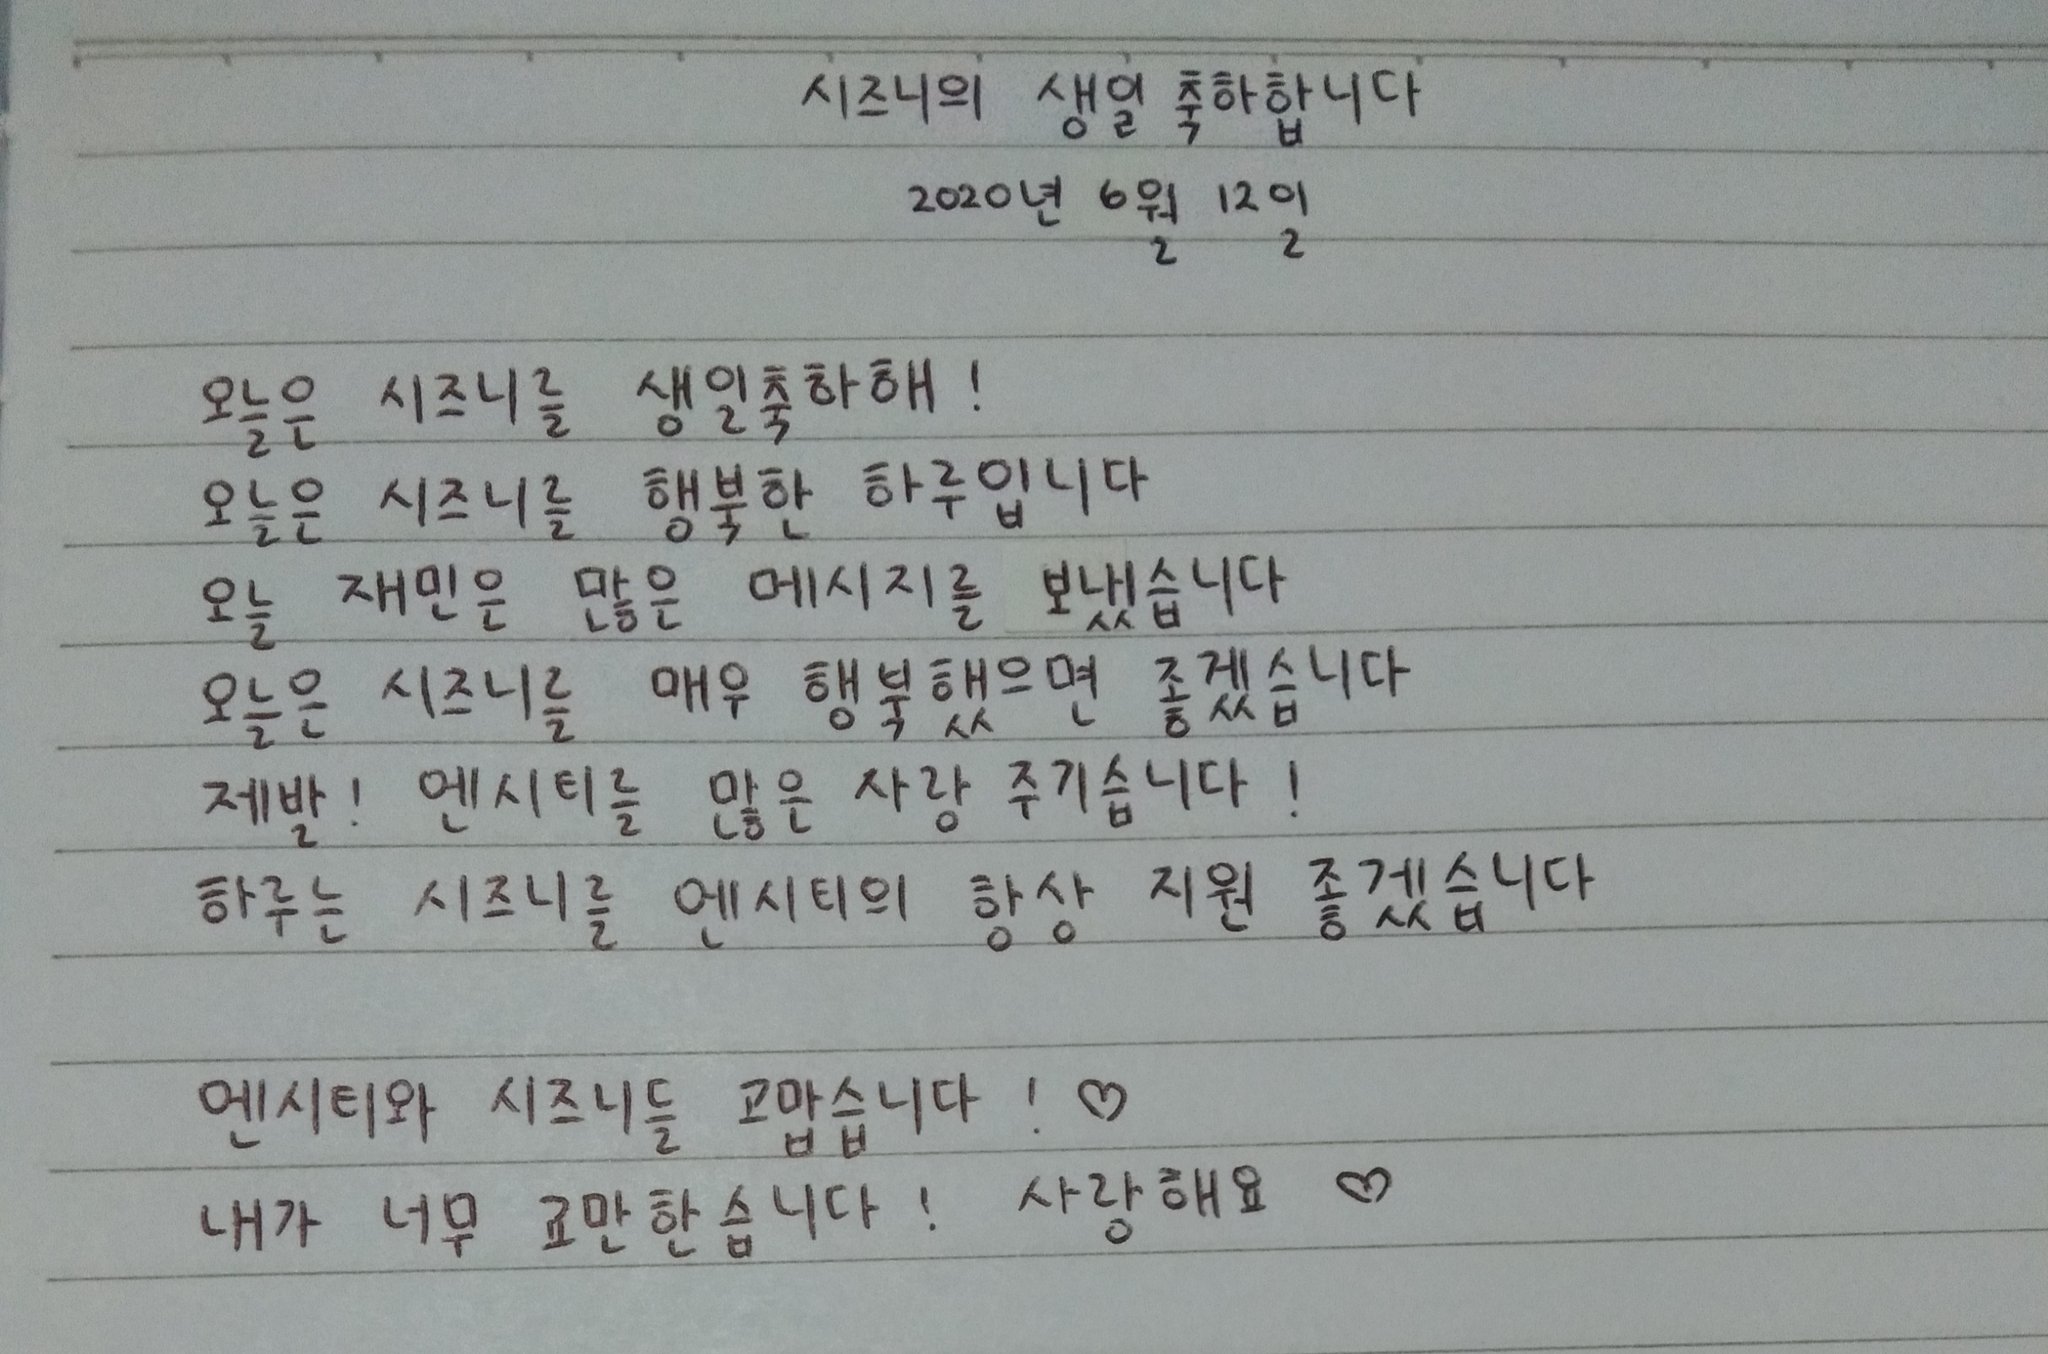 시즈니의 생일 축하합니다
2020년 6월 12일
오늘은 시즈니를 생일축하해!
오늘은 시즈니를 행복한 하루입니다
오늘 재민은 많은 메시지를 보냈습니다
오늘은 시즈니를 매우 행복했으면 좋겠습니다
제발! 엔시티를 많은 사랑 주기습니다!
하루는 시즈니를 엔시티의 항상 지원 좋겠습니다
엔시티와 시즈니들 고맙습니다! ♡
내가 너무 교만한습니다! 사랑해요 ♡